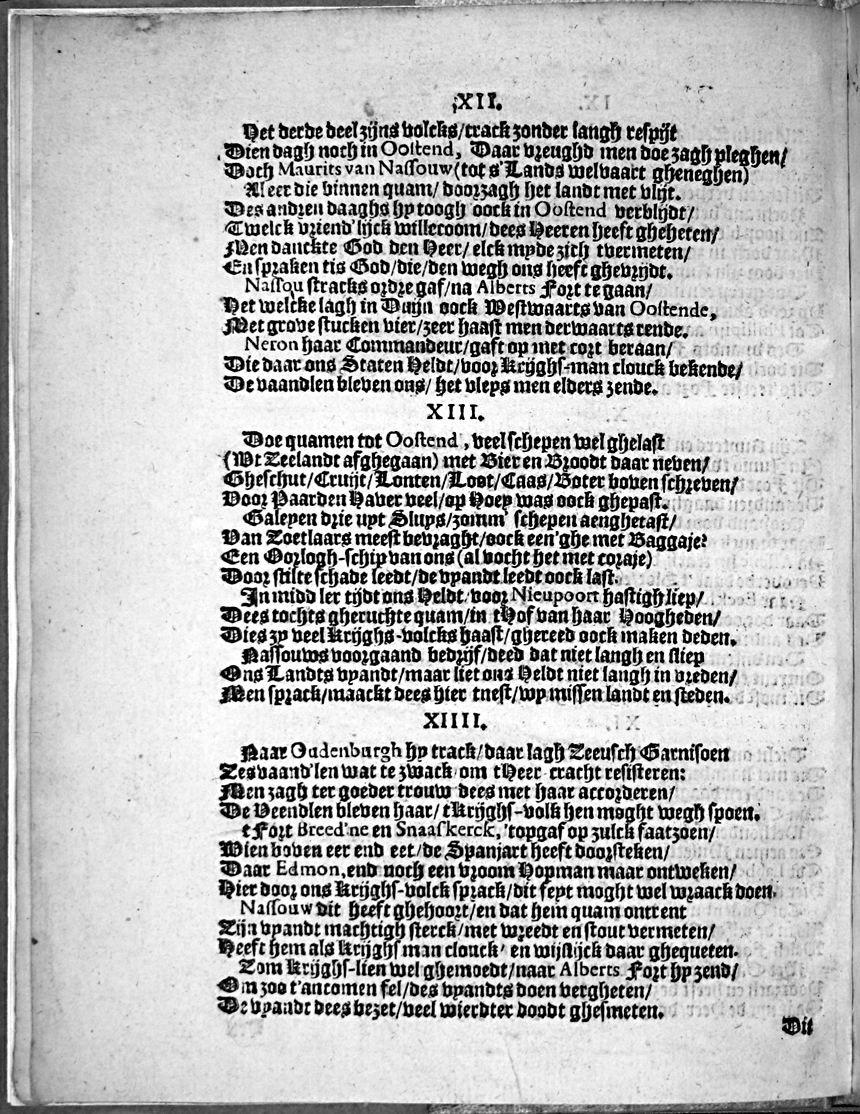 XII.
Het derde deel zijns volcks/track zonder langh respijt
Dien dagh noch in Oostend, Daar vreughd men doe zagh pleghen/
Doch Maurits van Nassouw (tot s'Lands welvaart gheneghen)
Al eer die binnen quam/ doorzagh het landt met vlijt.
Des andren daaghs hy toogh oock in Oostend verblijdt/
Twelck vriend'lijck willecoom/dees Heeren heeft gheheten/
Men danckte God den Heer/ elck myde zich tvermeten/
En spraken tis God/die/den wegh ons heeft ghevrijdt.
Nassou stracks ordre gaf/na Alberts Fort te gaan/
Het welcke lagh in Duijn oock Westwaarts van Oostende,
Met grove stucken vier/zeer haast men derwaarts rende.
Neron haar Commandeur/gaft op met cort beraan/
Die daar ons Staten Heldt/voor Krijghs-man clouck bekende/
De vaandlen bleven ons/ het vleys men elders zende.
XIII.
Doe quamen tot Oostend, veel schepen wel ghelast
(Wt Zeelandt afghegaan) met Bier en Broodt daar neven/
Gheschut/Cruijt/Lonten/Loot/Caas/Boter boven schreven/
Voor Paarden Haver veel/op Hoey was oock ghepast.
Galeyen drie uyt Sluys/zomm' schepen aenghetast/
Van Zoetlaars meest bevraght/oock een'ghe met Baggaje:
Een Oorlogh-schip van ons (al vocht het met coraje)
Door stilte schade leedt/de vyandt leedt oock last.
In midd ler tijdt ons Heldt voor Nieupoort hastigh liep/
Dees tochts gheruchte quam/in tHof van haar Hoogheden/
Dies zy veel Krijghs-volcks haast/ghereed oock maken deden.
Nassouws voorgaand bedrijf/deed dat niet langh en sliep
Ons Landts vyandt/maar liet ons Heldt niet langh in vreden/
Men sprack/maackt dees hier tnest/wy missen landt en steden.
XIIII.
Naar Oudenburgh hy track/daar lagh Zeeusch Garnisoen
Zes vaand'len wat te zwack om tHeer cracht resisteren:
Men zagh ter goeder trouw dees met haar accorderen/
De Veendlen bleven haar/ tKrijghs-volk hen moght wegh spoen.
t Fort Breed'ne en Snaaskerck, 'topgaf op zulck faatzoen/
Wien boven eer end eet/de Spanjart heeft doorsteken/
Daar Edmon, end noch een vroom Hopman maar ontweken/
Hier door ons Krijghs-volck sprack/dit feyt moght wel wraack doen.
Nassouw dit heeft ghehoort/en dat hem quam ontrent
Zijn vyandt machtigh sterck/met wreedt en stout vermeten/
Heeft hem als Krijghs man clouck/ en wijslijck daar ghequeten.
Zom Krijghs-lien wel ghemoedt/naar Alberts Fort hy zend/
Om zoo t'ancomen fel/des vyandts doen vergheten/
De vyandt dees bezet/veel wierdter doodt ghesmeten.
Dit